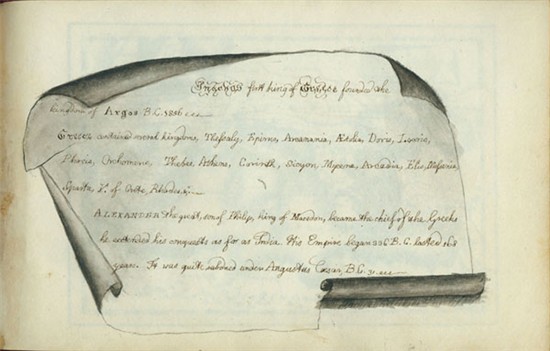 Inachus first king of Greece founded the
kingdom of Argos B.C. 1856
Greece contained several kingdoms, Thessaly, Epirus, Acarnania, Ætolia, Doris, Locris,
Phocis, Orchomene, Thebes Athens, Corinth, Sicyon, Mycena, Arcadia, Elis, Messenia,
Sparta, of Crete, Rhodes,
ALEXANDER the great, son of Philip, king of Macedon, became the chief of the Greeks
he extended his conquests as far as India. The Empire began 336 B.C. lasted
years. It was quite subdued under Augustus Cæsar, B.C.